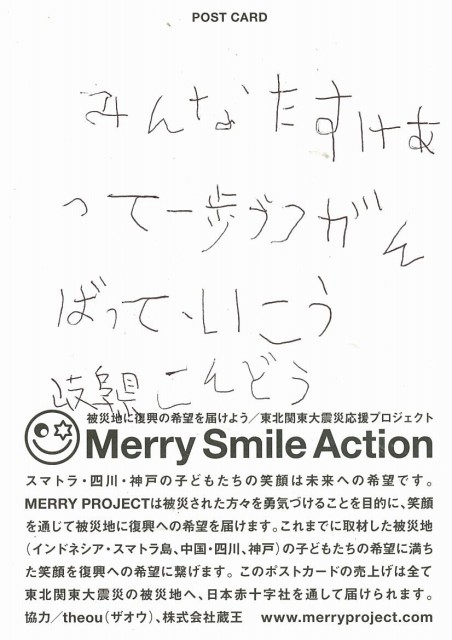 POST CARD
みんなたすけあ
って一歩づつがん
ばって、いこう
岐阜県こんどう
被災地に復興の希望を届けよう／東北関東大震災応援プロジェクト
Merry Smile Action
スマトラ・四川・神戸の子どもたちの笑顔は未来への希望です。
MERRY PROJECTは被災された方々を勇気づけることを目的に、笑顔
を通じて被災地に復興への希望を届けます。これまでに取材した被災地
（インドネシア・スマトラ島、中国・四川、神戸）の子どもたちの希望に満ち
た笑顔を復興への希望に繋げます。このポストカードの売上げは全て
東北関東大震災の被災地へ、日本赤十字社を通して届けられます。
協力／theou（ザオウ）、株式会社蔵王 www.merryproject.com